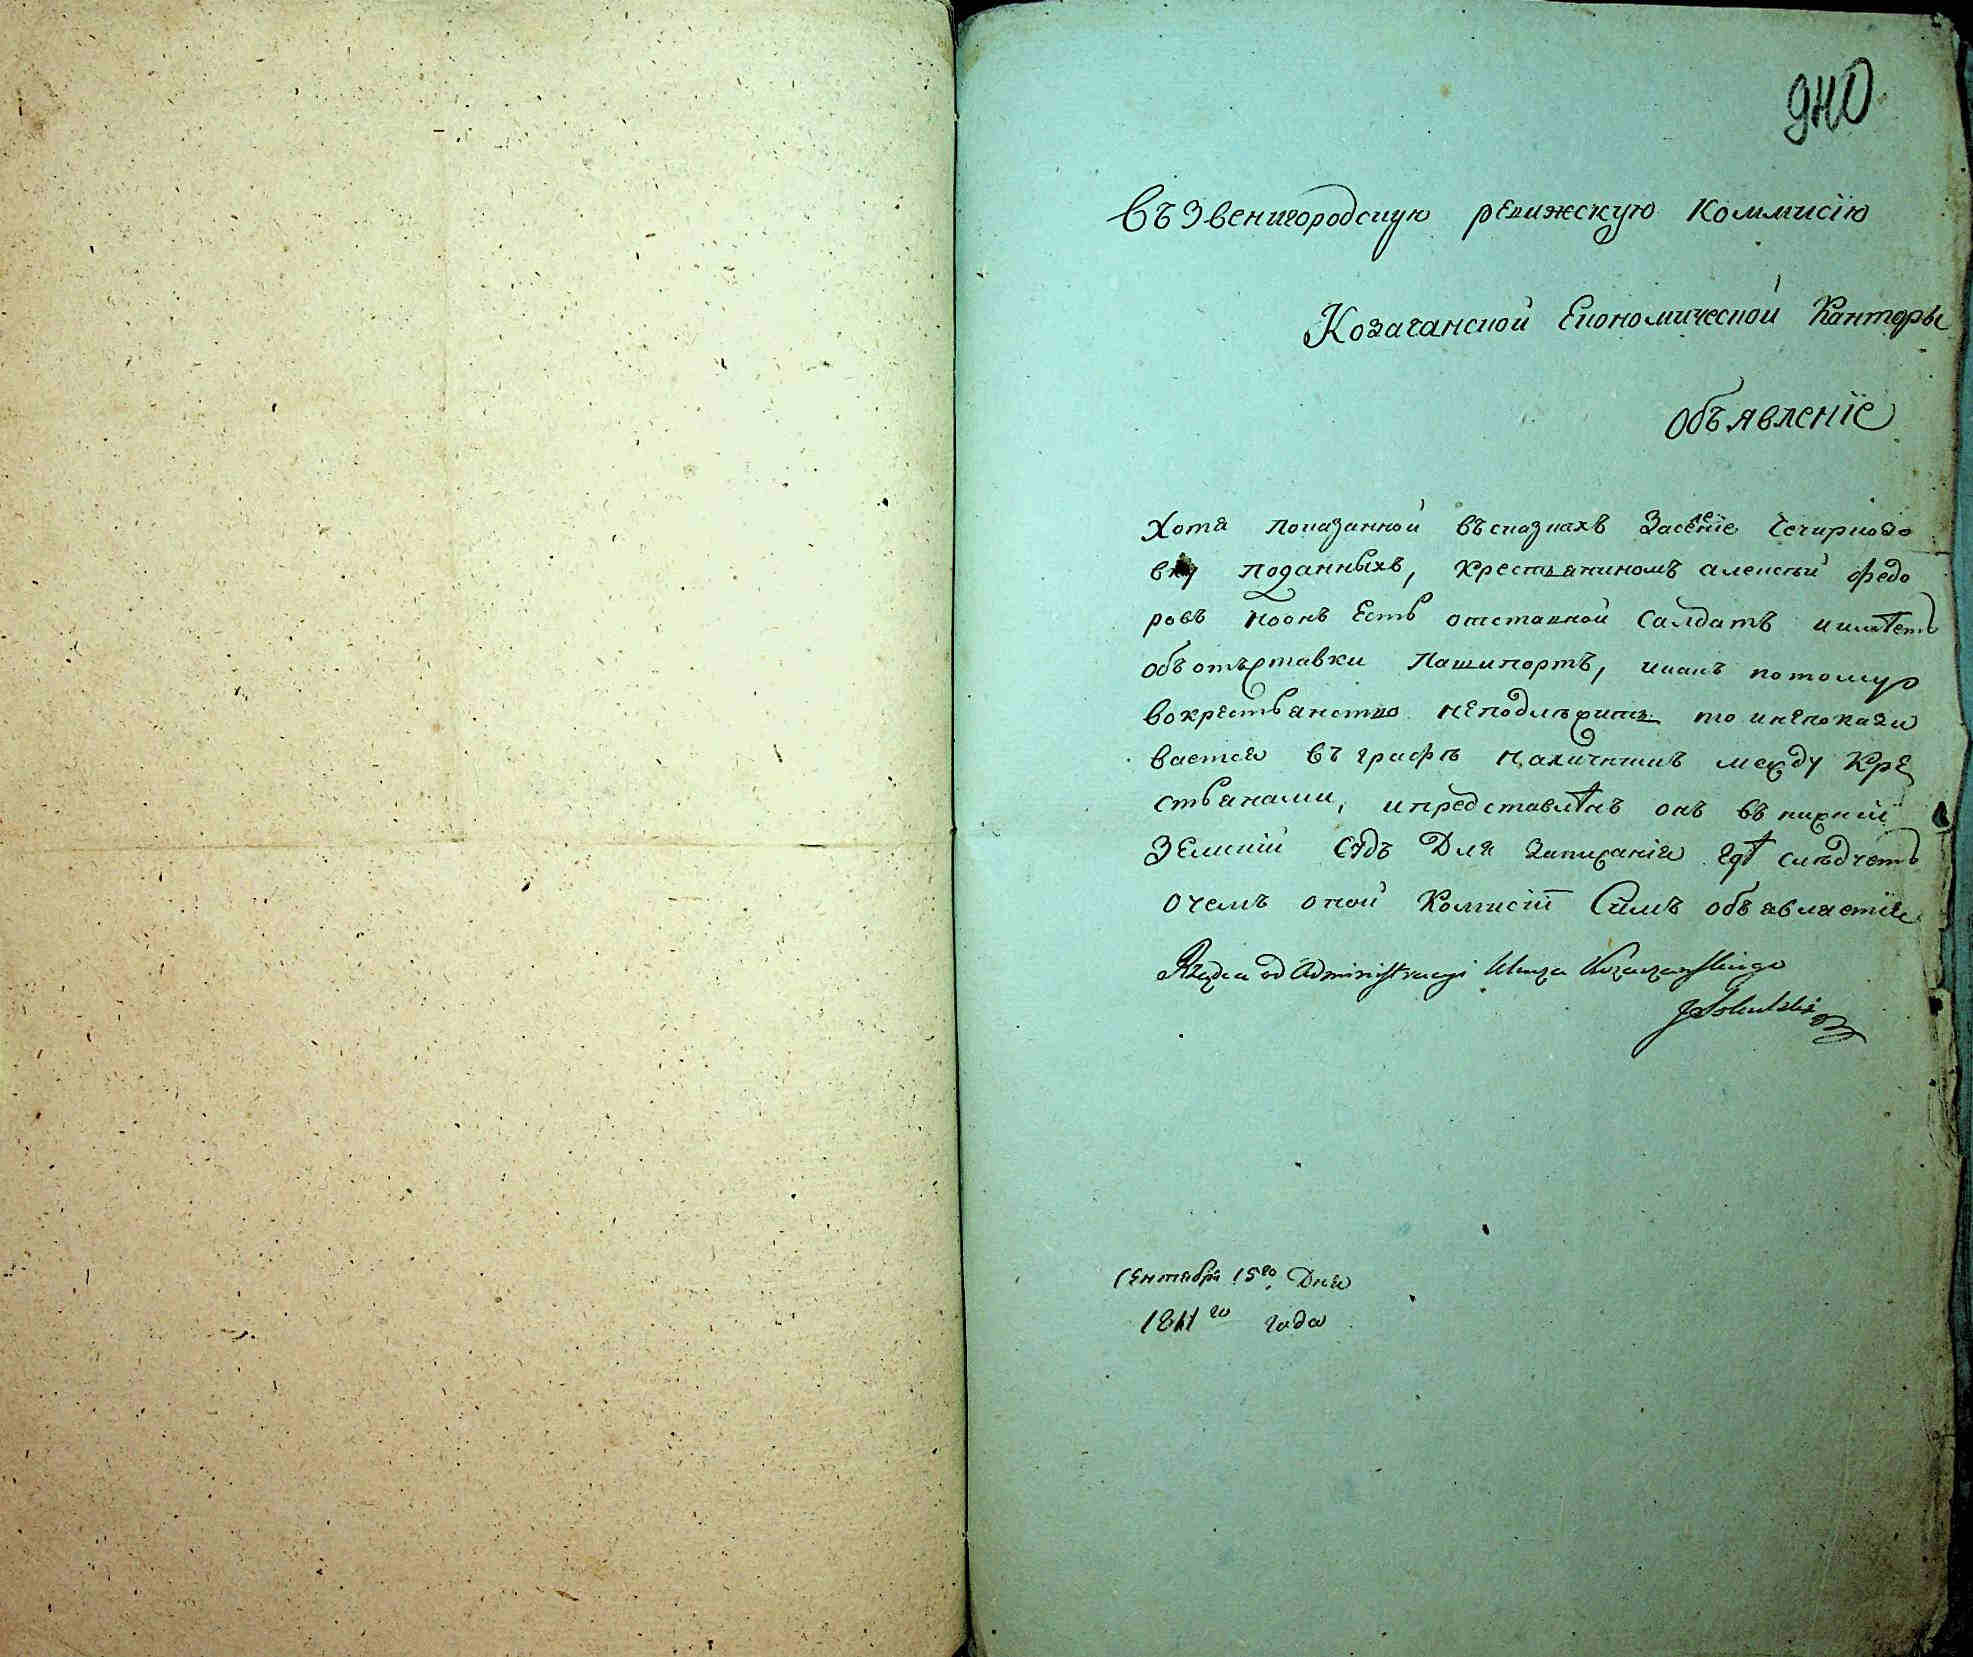 940
Въ Звенигородскую ревижскую Коммисїю
Козачанской Економической Канторы
Объявленїе
Хотя показанной въ сказкахъ За селенїе Чечирково
вку поданныхъ, крестьяниномъ алексѣй Федо
ровъ но онъ Есть отставной Салдатъ и имѣетъ
объ отъставки пашпортъ, и какъ потому
во крестьянство неподлѣжитъ то и непокази
вается въ графѣ наличнымъ между Кре
стьянами, и представлѣнъ онъ въ нижнїй
Земскїй Судъ Для записанїя гдѣ слѣдчетъ
о чемъ оной Комисїи Симъ объявляется
Rządca od Administracyi Klucza Kozaczanskiego
Сентября 15го Дня
1811го года